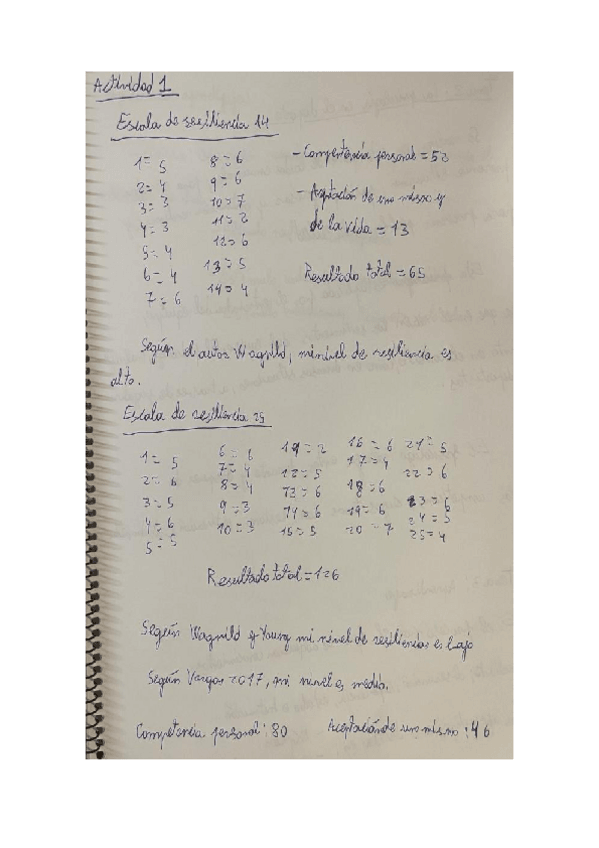 Actividad 1
Escala de resiliencia 14
1= 5 8=6 - Competencia personal = 52
2= 4 9=6
3= 3 10=7 - Aceptación de uno mismo y
4= 3 11=2 de la vida = 13
5= 4 12=6
6= 4 13=5 Resultado total = 65
7= 6 14=4
Según el autor Wagnild, mi nivel de resiliencia es
alto.
Escala de resiliencia 25
1= 5 6= 6 11= 2 16= 6 21= 5
2= 6 7= 4 12= 5 17= 4 22= 6
3= 5 8= 4 13= 6 18= 6 23= 6
4= 6 9= 3 14= 6 19= 6 24= 5
5= 5 10= 3 15= 5 20= 7 25= 4
Resultado total = 126
Según Wagnild y Young mi nivel de resiliencia es bajo
Según Vargas 2017, mi nivel es medio.
Competencia personal: 80 Aceptación de uno mismo: 46